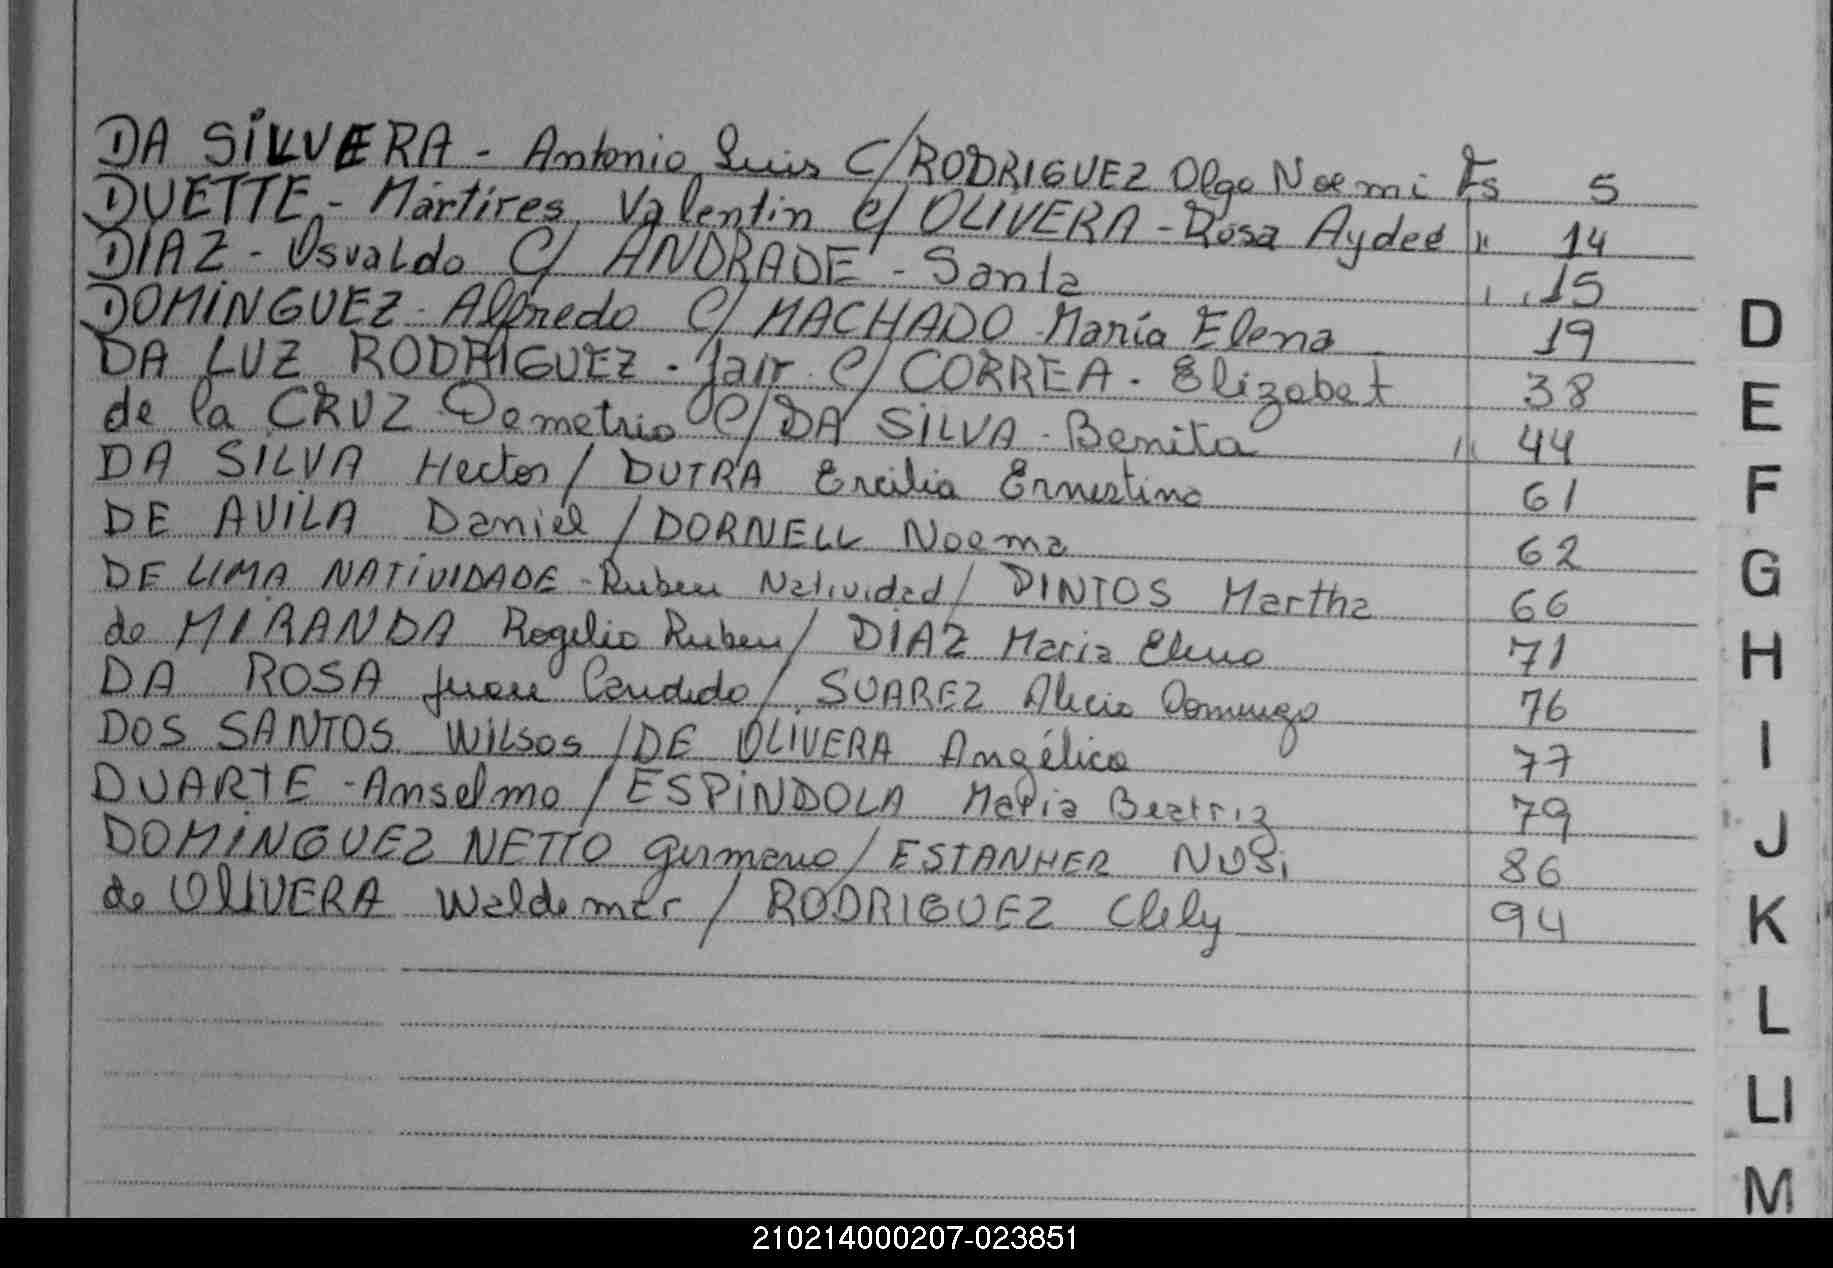 DA SILVERA - Antonio Luis C/RODRIGUEZ Olga Noemi Fs 5
DUETTE - Mártires Valentin C/ OLIVERA - Rosa Aydeé " 14
DIAZ - Osvaldo C/ ANDRADE - Santa " 15
DOMINGUEZ - Alfredo C/ MACHADO María Elena 19
DA LUZ RODRIGUEZ - Jair C/ CORREA - Elizabet 38
de la CRUZ Demetrio C/DA SILVA - Benita " 44
DA SILVA Hector / DUTRA Ercilia Ernestina 61
DE AVILA Daniel / DORNELL Noema 62
DE LIMA NATIVIDADE - Ruben Natividad / PINTOS Martha 66
de MIRANDA Rogelio Ruben / DIAZ Maria Elena 71
DA ROSA Juan Candido / SUAREZ Alicia Dominga 76
DOS SANTOS Wilsos / DE OLIVERA Angélica 77
DUARTE - Anselmo / ESPINDOLA Maria Beatriz 79
DOMINGUEZ NETTO Germano / ESTANHER 86
de OLIVERA Waldemar / RODRIGUEZ Clely 94
D
E
F
G
H
I
J
K
L
Ll
M
210214000207-023851